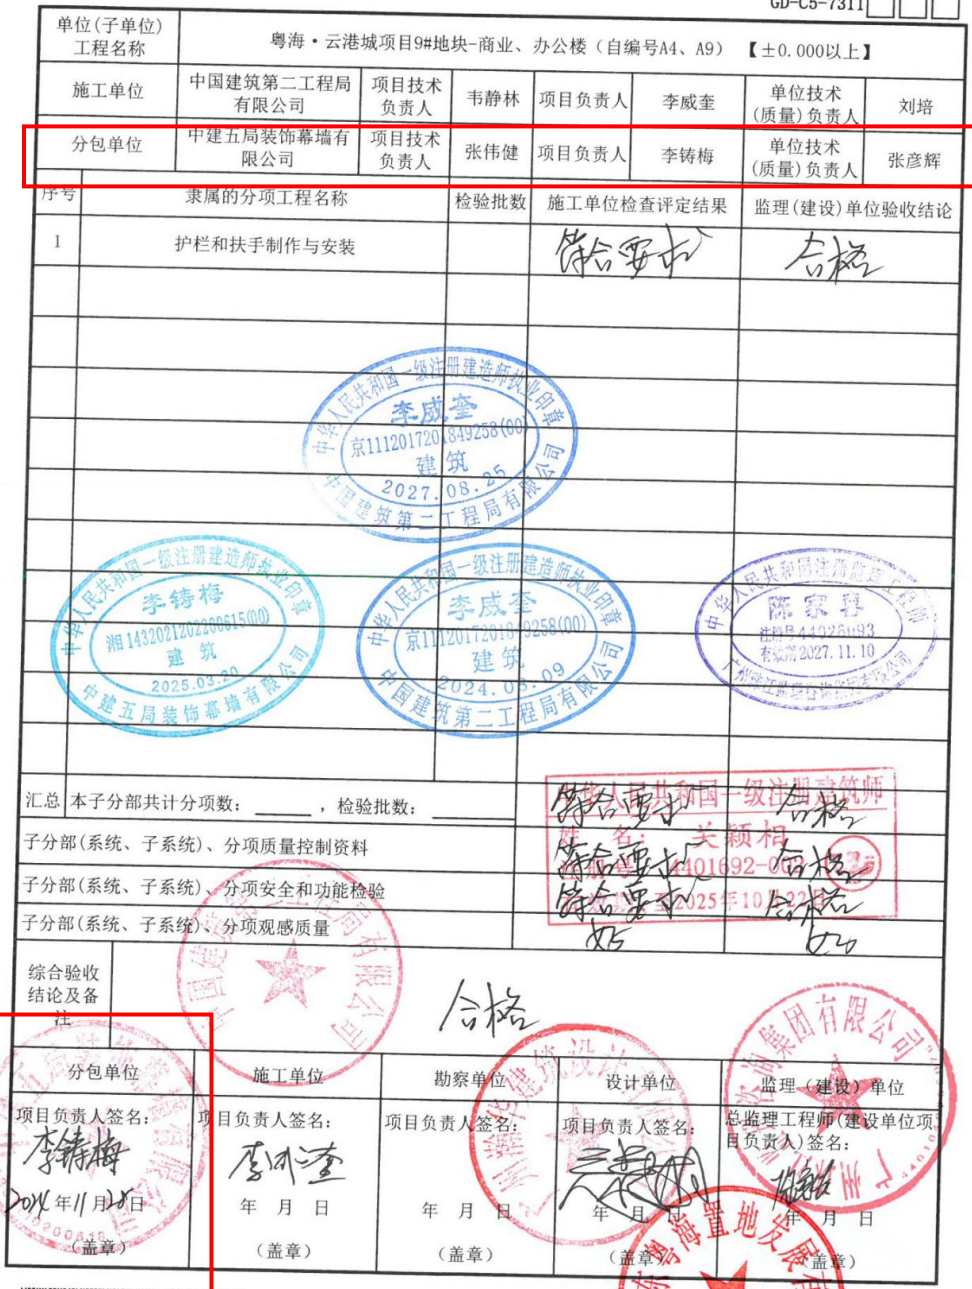 GD-C5-7311
单位(子单位)
工程名称
粤海·云港城项目9#地块-商业、办公楼（自编号A4、A9）【±0.000以上】
施工单位
中国建筑第二工程局
有限公司
项目技术
负责人
韦静林
项目负责人
李威奎
单位技术
(质量)负责人
刘培
分包单位
中建五局装饰幕墙有
限公司
项目技术
负责人
张伟健
项目负责人
李铸梅
单位技术
(质量)负责人
张彦辉
序号
隶属的分项工程名称
检验批数
施工单位检查评定结果
监理(建设)单位验收结论
1
护栏和扶手制作与安装
符合要求
合格
中华人民共和国一级注册建造师执业印章
李威奎
京1112017201849258(00)
建筑
2027.08.25
中国建筑第二工程局有限公司
中华人民共和国一级注册建造师执业印章
李铸梅
湘1432021202200615(00)
建筑
2025.03.20
中建五局装饰幕墙有限公司
中华人民共和国一级注册建造师执业印章
李威奎
京1112017201849258(00)
建筑
2024.08.09
中国建筑第二工程局有限公司
中华人民共和国注册监理工程师
注册号44026093
有效期2027.11.10
汇总
本子分部共计分项数：____，检验批数：____
符合要求
合格
中华人民共和国一级注册建筑师
姓 名：关颖相
子分部(系统、子系统)、分项质量控制资料
符合要求
合格
子分部(系统、子系统)、分项安全和功能检验
符合要求
合格
2025年10月22日
子分部(系统、子系统)、分项观感质量
好
好
综合验收
结论及备
注
合格
中国建筑第二工程局有限公司
分包单位
施工单位
勘察单位
设计单位
监理（建设）单位
项目负责人签名：
李铸梅
2024年11月28日
（盖章）
项目负责人签名：
李威奎
年 月 日
（盖章）
项目负责人签名：
年 月 日
（盖章）
项目负责人签名：
年 月 日
（盖章）
总监理工程师(建设单位项
目负责人)签名：
年 月 日
（盖章）
粤海置地发展有